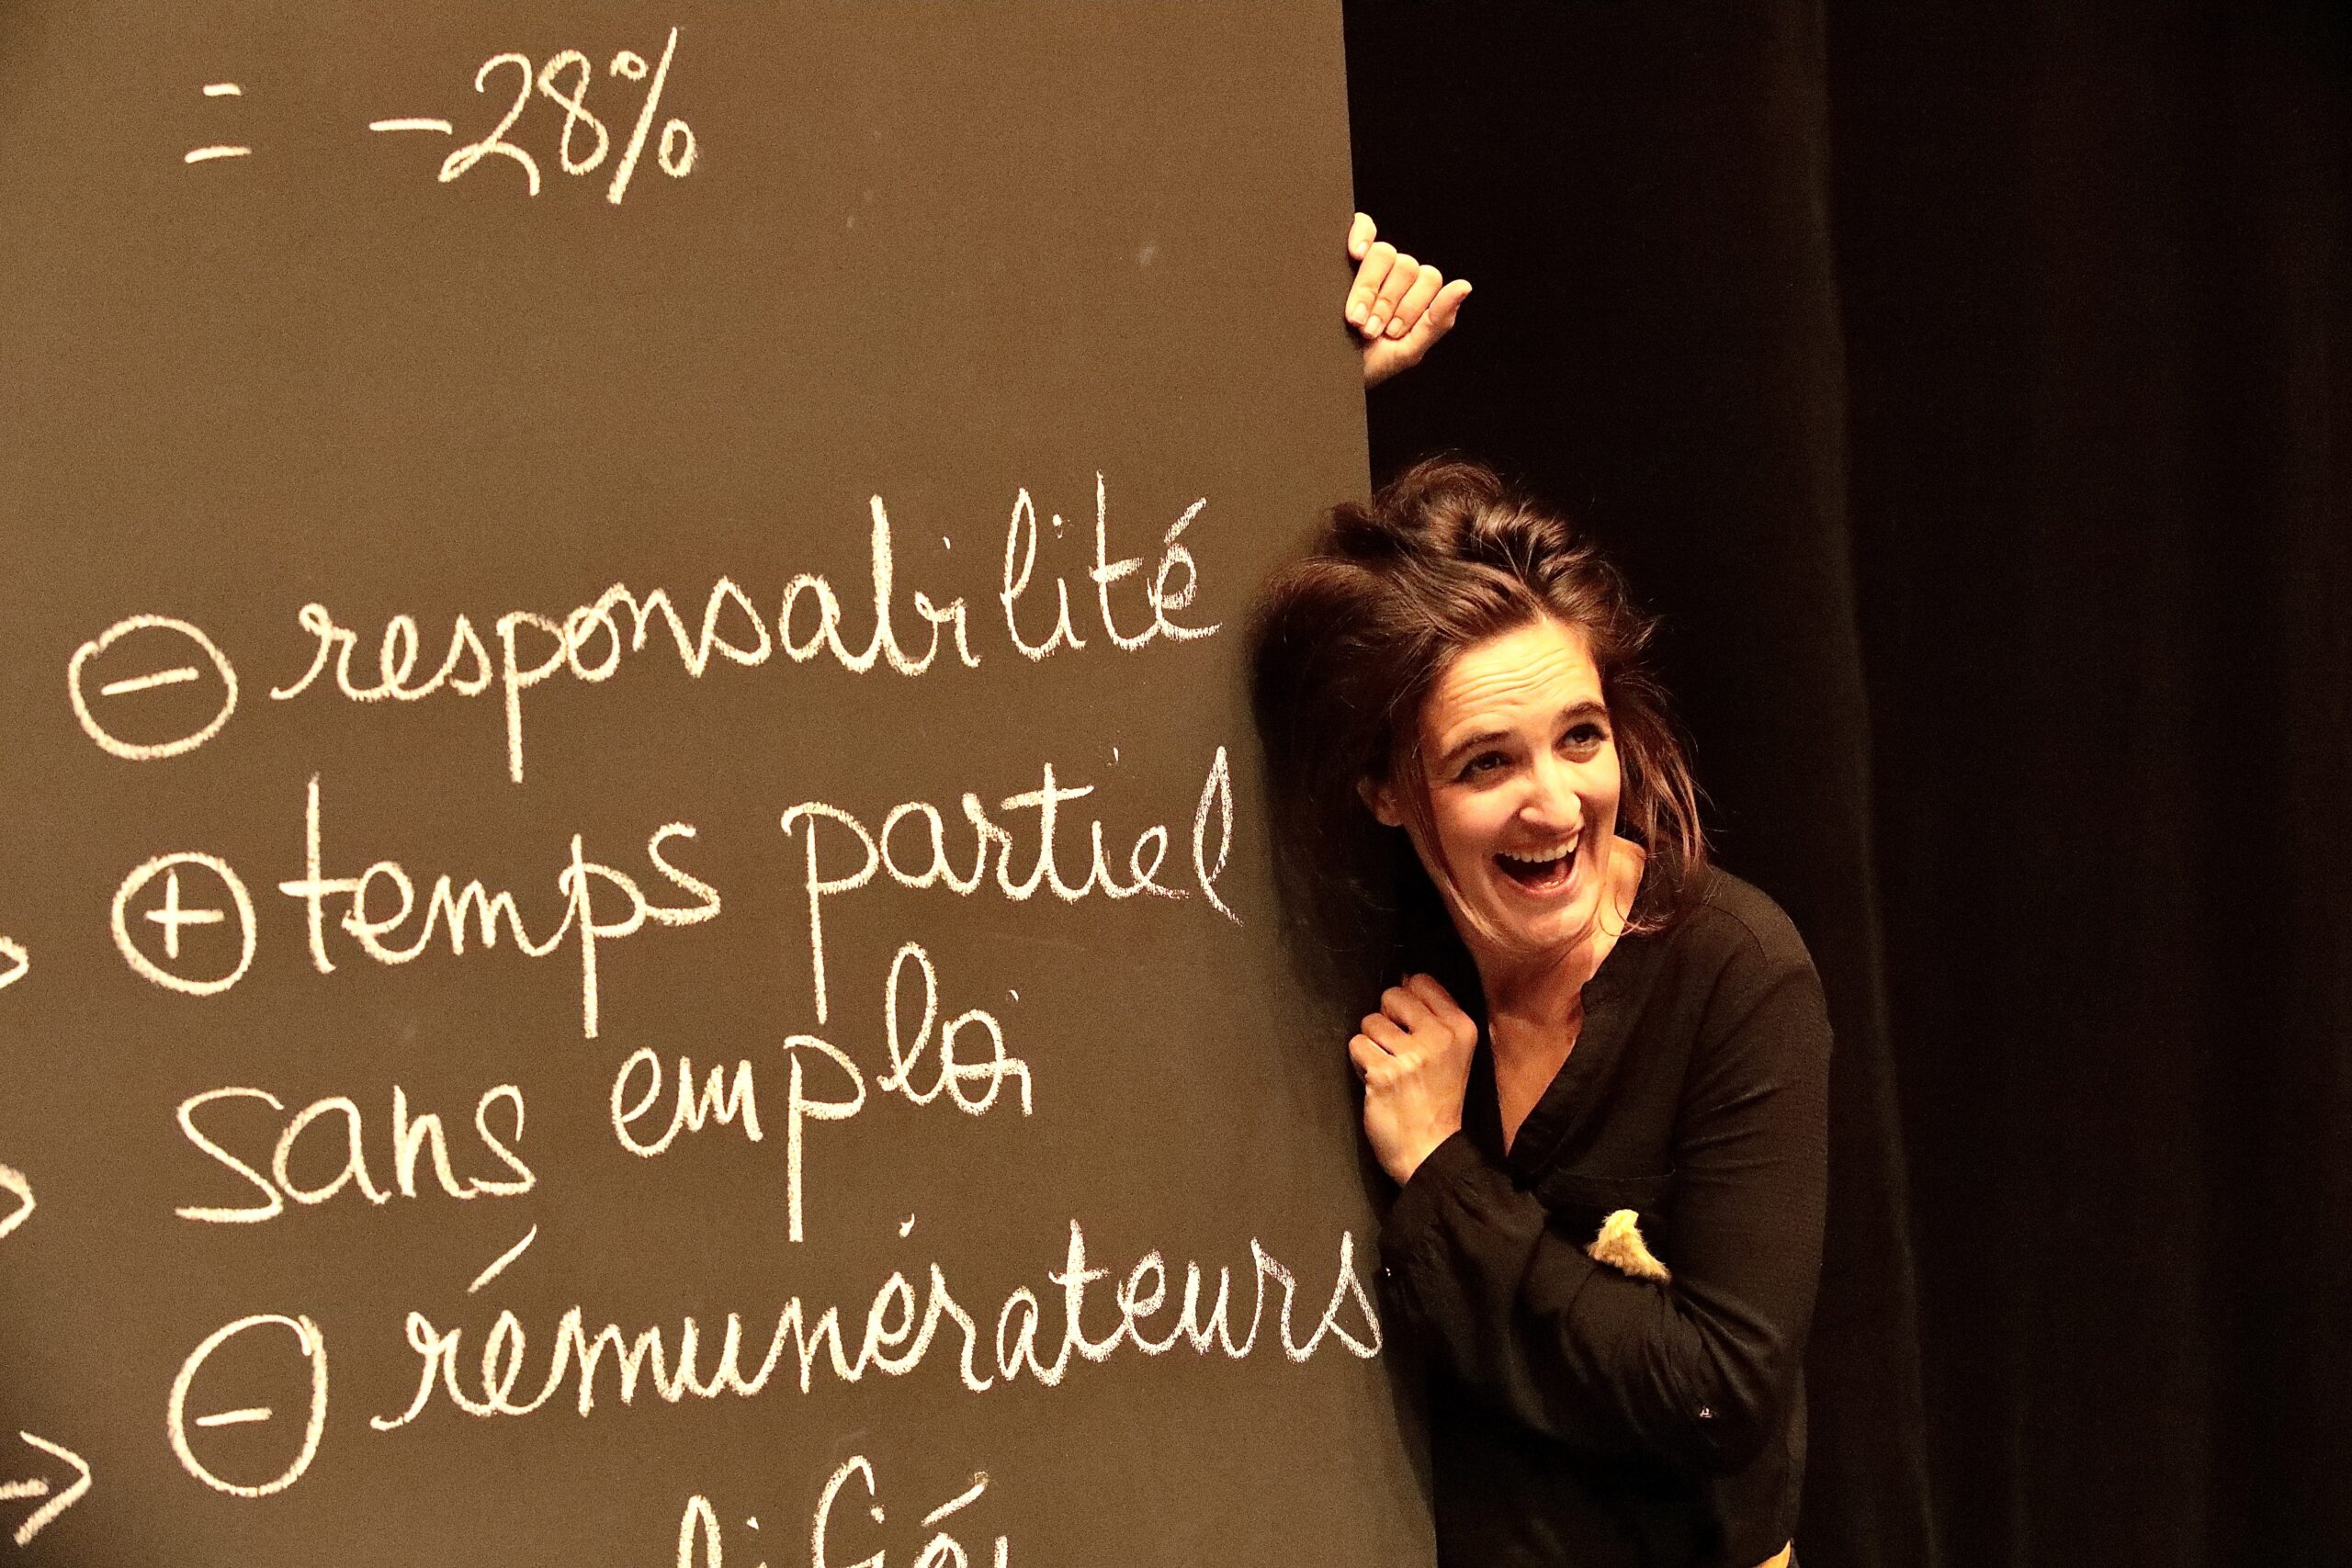 = -28%
⊖ responsabilité
> ⊕ temps partiel
> sans emploi
-> ⊖ rémunérateurs